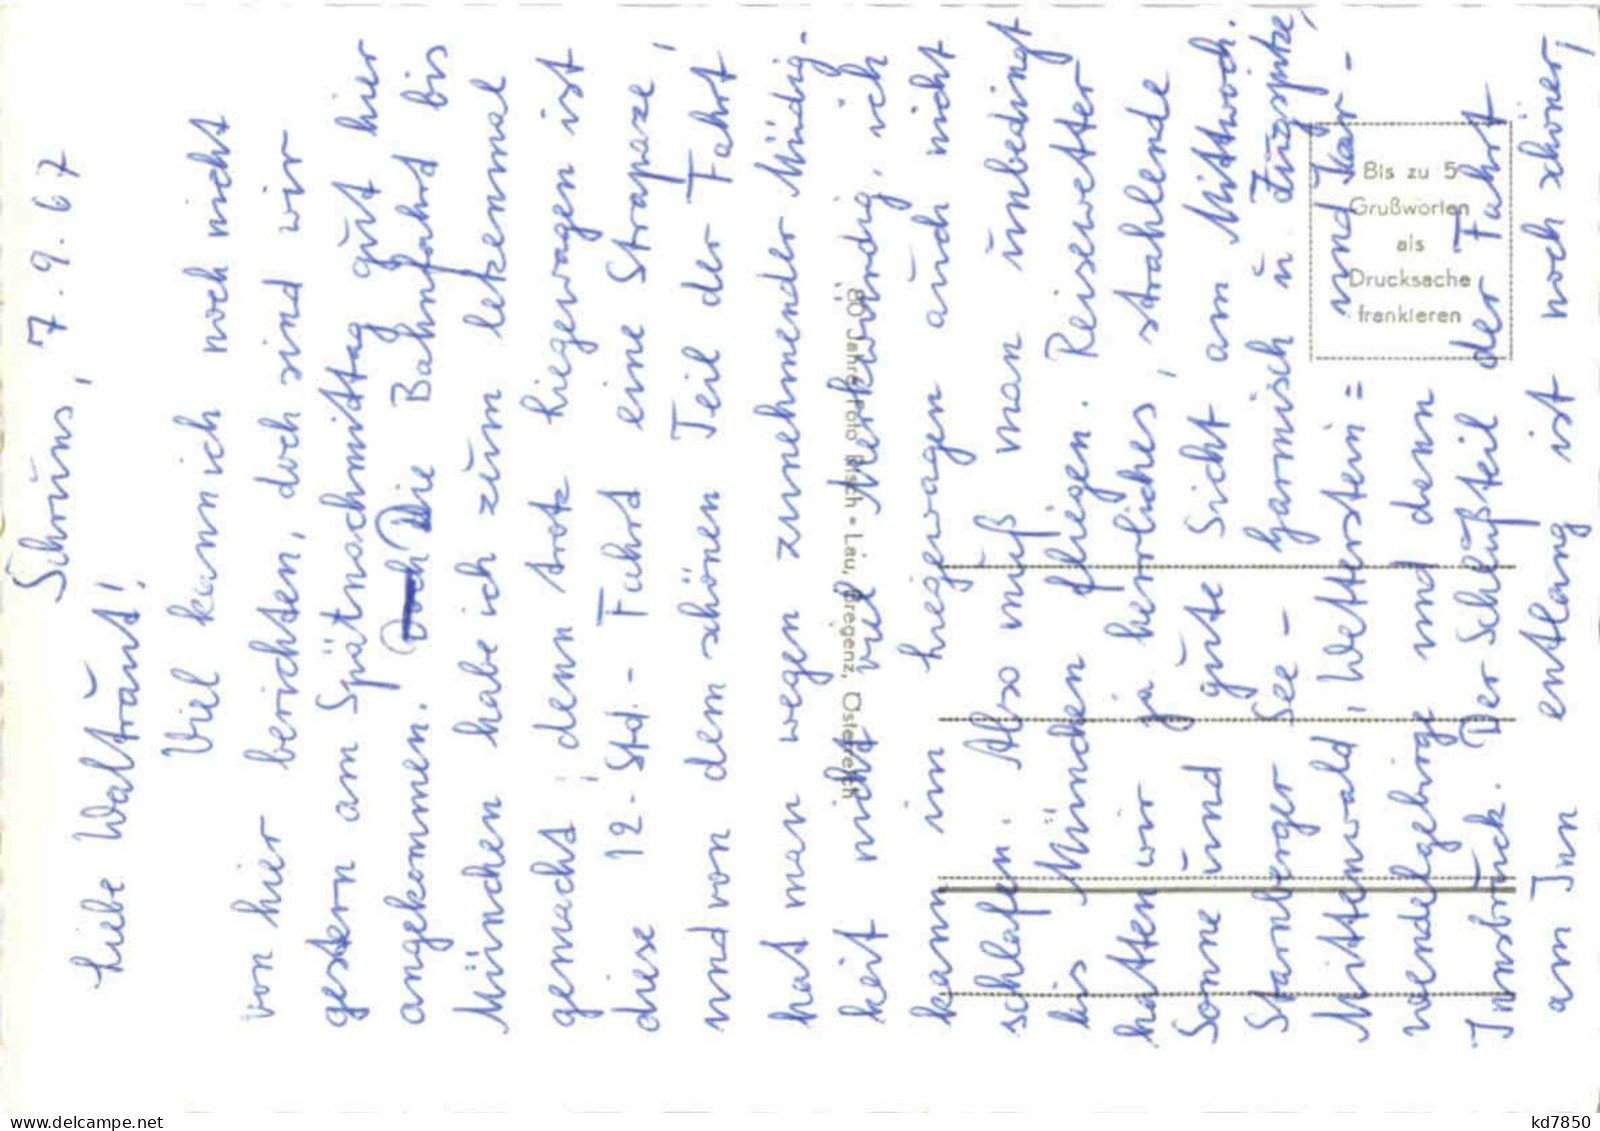 Schruns, 7.9.67
Liebe Waltraut!
Viel kann ich noch nicht
von hier berichten, doch sind wir
gestern am Spätnachmittag gut hier
angekommen. Doch Die Bahnfahrt bis
München habe ich zum letzenmal
gemacht, denn trotz Liegewagen ist
diese 12-Std.- Fahrt eine Strapaze,
und von dem schönen Teil der Fahrt
hat man wegen zunehmender Müdig-
keit nicht viel. Merkwürdig, ich
kann im Liegewagen auch nicht
schlafen. Also muß man unbedingt
bis München fliegen. Reisewetter
hatten wir ja herrliches, strahlende
Sonne und gute Sicht am Mittwoch.
Starnberger See - Garmisch u. Zugspitze,
Mittenwald, Wetterstein= und Kar-
wendelgebirge und dann der Fahrt
Innsbruck. Der Schlußteil
am Inn entlang ist noch schöner,
80 Jahre Foto Risch - Lau, Bregenz, Österreich
Bis zu 5
Grußworten
als
Drucksache
frankieren
www.delcampe.net
kd7850